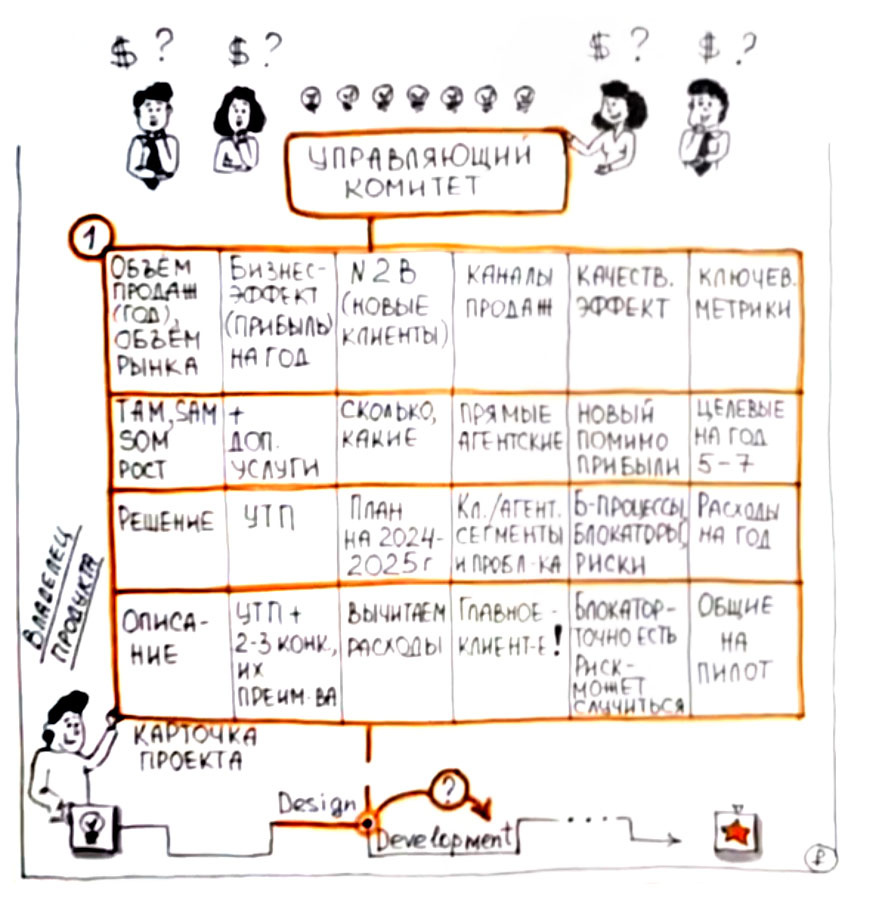 $ ? $ ? $ ? $ ?
УПРАВЛЯЮЩИЙ
КОМИТЕТ
1
ОБЪЁМ
ПРОДАЖ
(ГОД),
ОБЪЁМ
РЫНКА
БИЗНЕС-
ЭФФЕКТ
(ПРИБЫЛЬ)
НА ГОД
N 2 B
(НОВЫЕ
КЛИЕНТЫ)
КАНАЛЫ
ПРОДАЖ
КАЧЕСТВ.
ЭФФЕКТ
КЛЮЧЕВ.
МЕТРИКИ
TAM, SAM
SOM
РОСТ
+
ДОП.
УСЛУГИ
СКОЛЬКО,
КАКИЕ
ПРЯМЫЕ
АГЕНТСКИЕ
НОВЫЙ
ПОМИМО
ПРИБЫЛИ
ЦЕЛЕВЫЕ
НА ГОД
5-7
РЕШЕНИЕ
УТП
ПЛАН
НА 2024-
2025г
КЛ./АГЕНТ.
СЕГМЕНТЫ
И ПРОБЛ-КА
Б-ПРОЦЕССЫ,
БЛОКАТОРЫ,
РИСКИ
РАСХОДЫ
НА ГОД
ОПИСА-
НИЕ
УТП +
2-3 КОНК.,
ИХ
ПРЕИМ-ВА
ВЫЧИТАЕМ
РАСХОДЫ
ГЛАВНОЕ -
КЛИЕНТ-Е!
БЛОКАТОР-
ТОЧНО ЕСТЬ
РИСК-
МОЖЕТ
СЛУЧИТЬСЯ
ОБЩИЕ
НА
ПИЛОТ
ВЛАДЕЛЕЦ
ПРОДУКТА
КАРТОЧКА
ПРОЕКТА
Design
?
Development
....